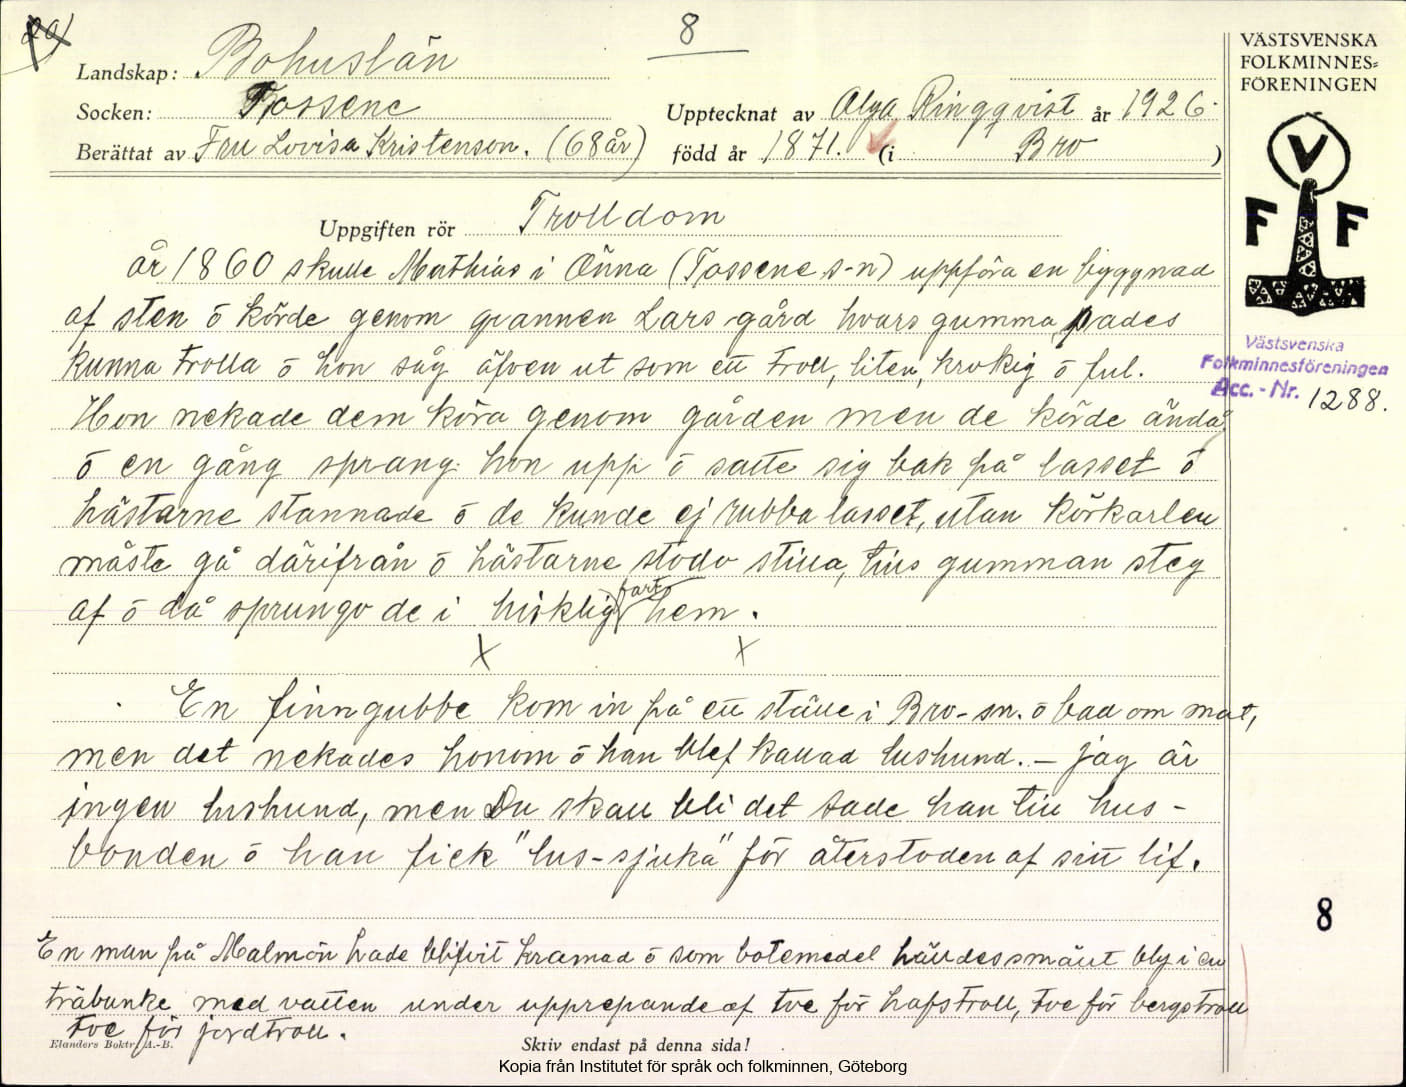 8
VÄSTSVENSKA
FOLKMINNES=
FÖRENINGEN
Landskap: Bohuslän
Socken: Tossene
Upptecknat av Olga Ringqvist år 1926.
Berättat av Fru Lovisa Kristenson. (68 år)
född år 1871. (i Bro )
V
F F
Uppgiften rör Trolldom
år 1860 skulle Mathias i Önna (Tossene s-n) uppföra en byggnad
af sten ō körde genom grannen Lars gård hvars gumma, sades
kunna trolla ō hon såg äfven ut som ett troll, liten, krokig ō ful.
Hon nekade dem köra genom gården men de körde ändå
ō en gång sprang hon upp ō satte sig bak på lasset ō
hästarne stannade ō de kunde ej rubba lasset, utan körkarlen
måste gå därifrån ō hästarne stodo stilla, tills gumman steg
af ō då sprungo de i hisklig fart hem.
Västsvenska
Folkminnesföreningen
Acc. - Nr. 1288.
En finngubbe kom in på ett ställe i Bro-sn. ō bad om mat,
men det nekades honom ō han blef kallad lushund. – jag är
ingen lushund, men Du skall bli det sade han till hus-
bonden ō han fick "lus-sjuka" för återstoden af sitt lif.
8
En man på Malmön hade blifvit kramad ō som botemedel hälldes smält bly i en
träbunke med vatten under upprepande af tve för hafstroll, tve för bergstroll
tve för jordtroll.
Elanders Boktr. A.-B.
Skriv endast på denna sida!
Kopia från Institutet för språk och folkminnen, Göteborg